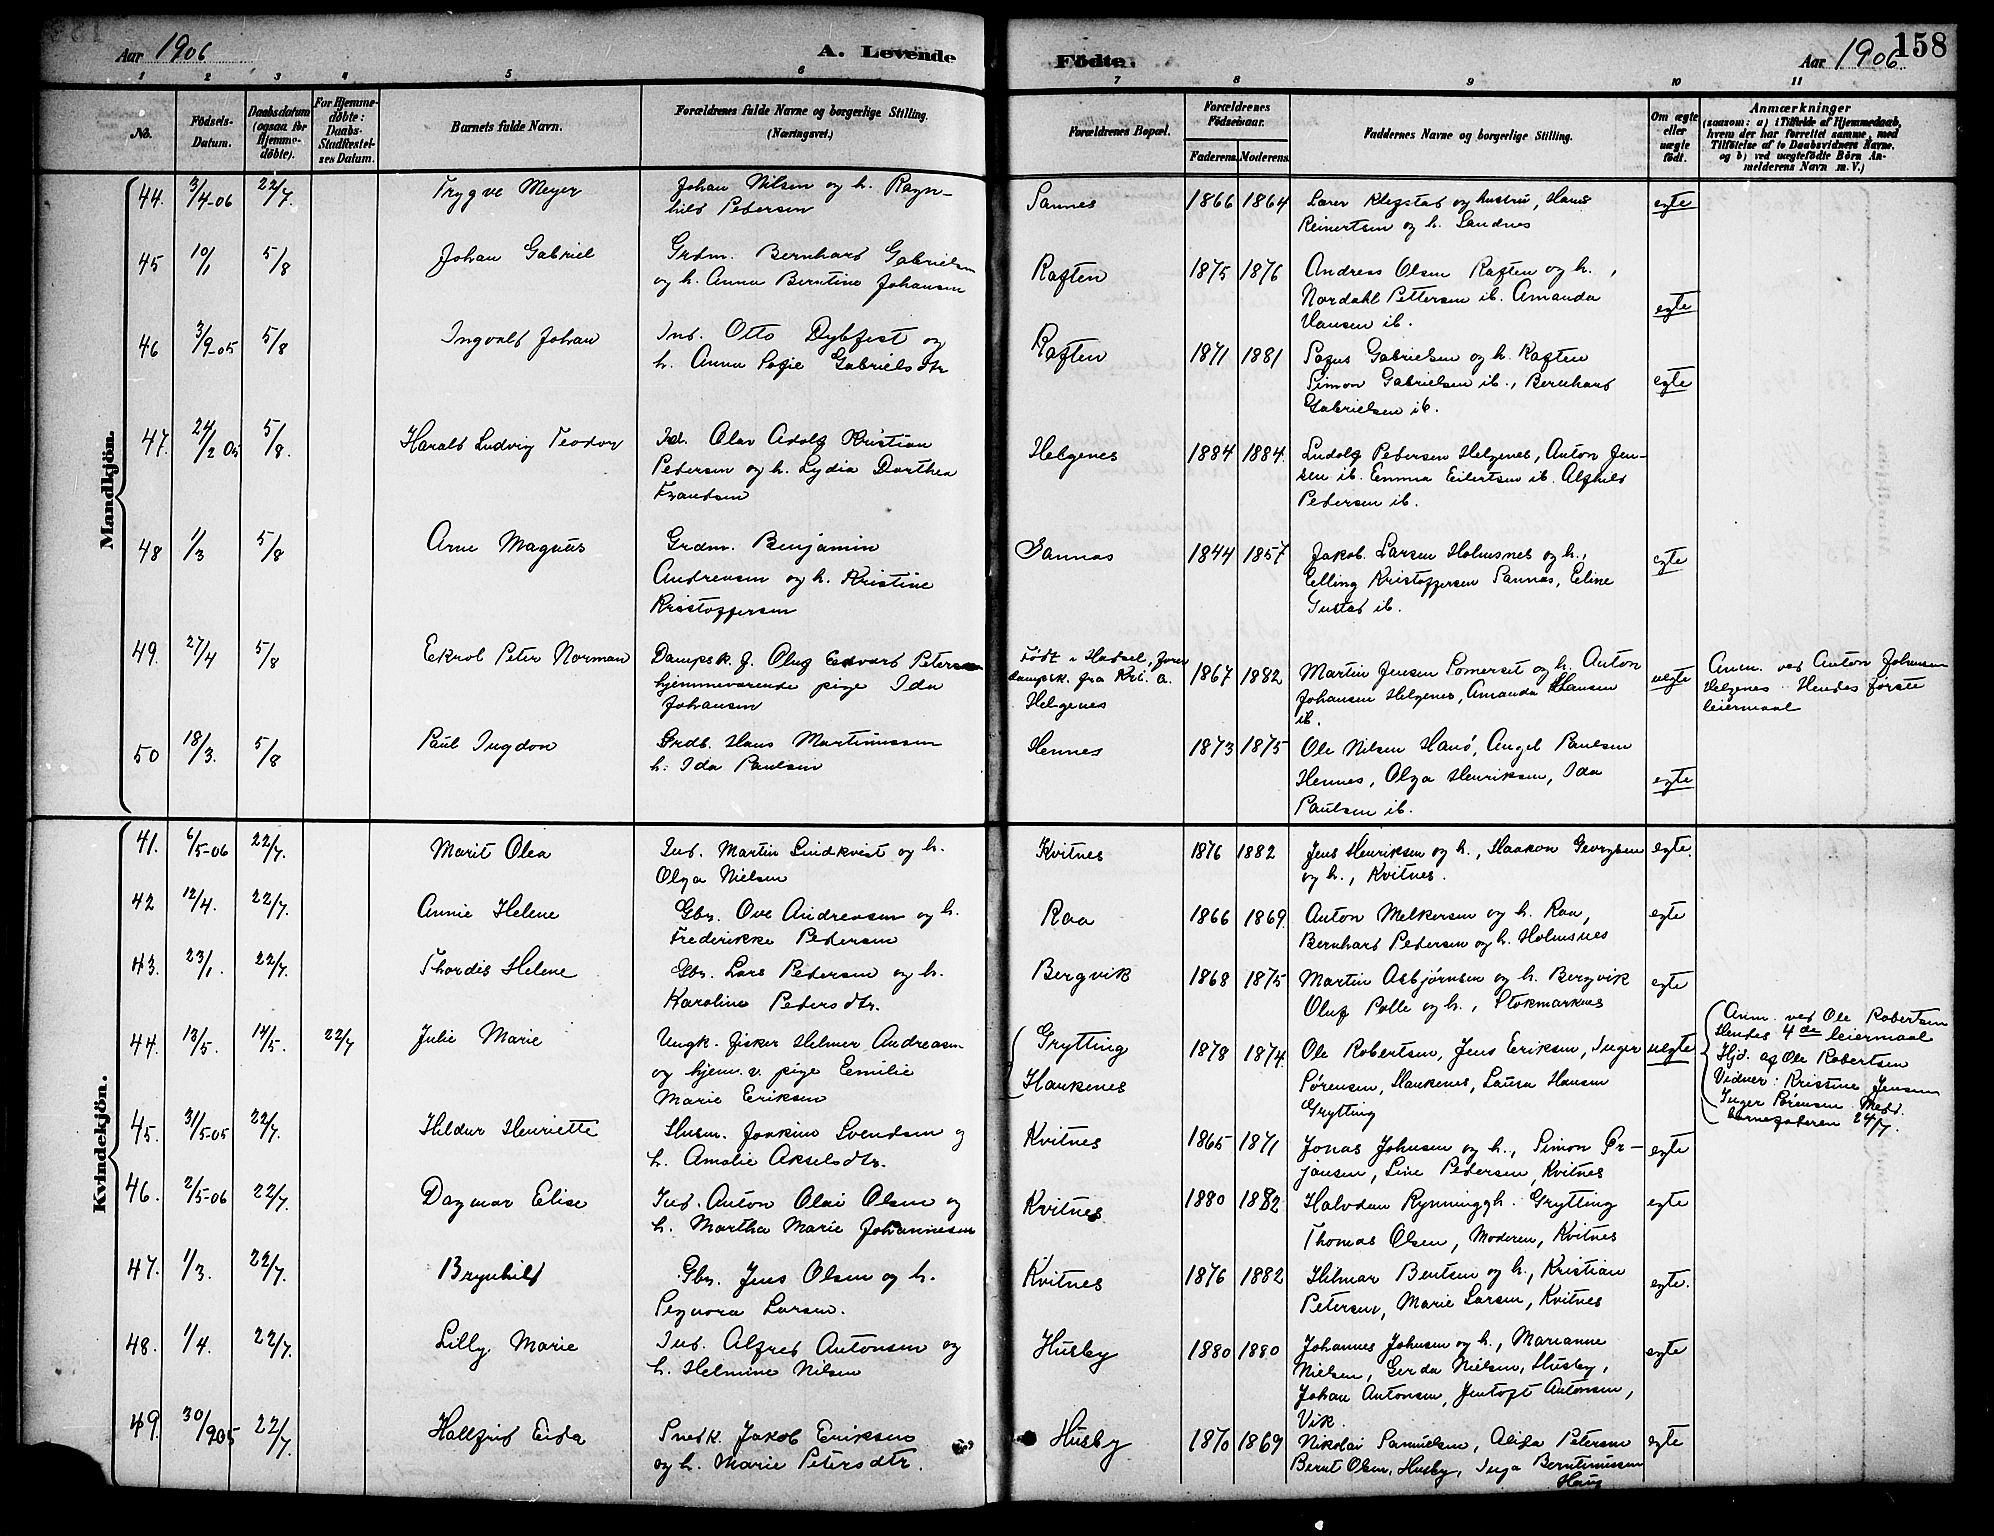 Aar 1906
A. Levende
Fødte.
Aar 1906.
158
1 2 3 4 5 6 7 8 9 10 11
No.
Fødsels-Datum.
Daabsdatum (ogsaa for Hjemmedøbte).
For Hjemmedøbte: Daabs-Stadfæstelses Datum.
Barnets fulde Navn.
Forældrenes fulde Navne og borgerlige Stilling.
(Næringsvei.)
Forældrenes Bopæl.
Forældrenes Fødselsaar.
Faderens. Moderens.
Faddernes Navne og borgerlige Stilling.
Om ægte eller uægte født.
Anmærkninger
(saasom: a) i Tilfælde af Hjemmedaab,
hvem der har forrettet samme, med
Tilføielse af to Daabsvidners Navne.
og b) ved uægtefødte Børn Anmelderens Navn m. V.)
Mandkjøn.
44. 3/4-06 22/7. Trygve Meyer Johan Nilsen og h. Ragn-
hild Pedersen
Sannes 1866 1864 Klegstad og hustru, Hans
Reinertsen og h. Sandnes
egte
45 10/1 5/8 Johan Gabriel Grdm. Bernhard Gabrielsen
og h. Anna Berntine Johansen
Raften 1875 1876 Andreas Olsen Raften og h.,
Nordahl Pettersen ib. Amanda
Hansen ib.
egte
46 3/9-05 5/8 Ingvald Johan Ind. Otto Dybfest og
h. Anna Sofie Gabrielsdtr
Raften 1871 1881 Gabrielsen og h. Raften
Simon Gabrielsen ib., Bernhard
Gabrielsen ib.
egte
47. 24/2 05 5/8. Harald Ludvig Teodor Ind. Olav Adolf Kristian
Pedersen og h. Lydia Dorthea
Frandsen
Helgenes 1884 1884. Ludolf Pedersen Helgenes, Anton Jen-
sen ib. Emma Eilertsen ib. Alfhild
Pedersen ib.
48 1/3 5/8 Arne Magnus Grdm. Benjamin
Andreasen og h. Kristine
Kristoffersen
Sannas 1844 1857 Jakob Larsen Holmsnes og h.,
Elling Kristoffersen Sannas, Celine
Gustad ib.
egte
49. 27/4 5/8 Ekrol Peter Norman Dampsk. f. Oluf Edvard Petersen
hjemmeværende pige Ida
Johansen
Født i Hadsel,
dampsk. fra Kri. a.
Helgenes
1867 1882 Martin Jensen Somerset og h. Anton
Johansen Helgenes, Amanda Hansen
ib.
uegte
Anm. ved Anton Johansen
Helgenes. Hendes første
leiermaal
50 18/3. 5/8 Paul Ingdon Grdb. Hans Martinussen
h. Ida Paulsen
Hennes 1873 1875 Ole Nilsen Hanø, Angel Paulsen
Hennes, Olga Henriksen, Ida
Paulsen ib.
egte
Kvindekjøn.
41. 6/5-06 22/7. Marit Olea Ind. Martin Lindkvist og h.
Olga Nielsen
Kvitnes 1876 1882 Jens Henriksen og h., Haakon Georgsen
og h., Kvitnes.
egte.
42 12/4. 22/7. Annie Helene Gbr. Ove Andreasen og h.
Frederikke Pedersen
Raa 1866 1869. Anton Melkersen og h. Raa,
Bernhard Pedersen og h. Holmsnes
egte
43. 23/1. 22/7. Thordis Helene Gbr. Lars Pedersen og h.
Karoline Pedersdtr.
Bergvik 1868 1875 Martin Asbjørnsen og h. Bergvik
Oluf Polle og h., Stokmarknes
egte
44. 13/5. 14/5. 22/7 Julie Marie Ungk. fisker Helmer Andreasen
og hjem.v. pige Emilie
Marie Eriksen
Grytting
Haukenes
1878 1874. Ole Robertsen, Jens Eriksen, Inger
Sørensen, Haukenes, Laura Hansen
Grytting
uegte
Anm. ved Ole Robertsen
Hendes 4de leiermaal
Hjd. af Ole Robertsen
Vidner: Kristine Jensen
Inger Sørensen. Medd.
barnefaderen 24/7.
45. 31/5-05 22/7. Hildur Henriette Husm. Joakim Svendsen og
h. Amalie Akselsdtr.
Kvitnes 1865 1871 Jonas Johnsen og h., Simon Ør-
jansen, Line Pedersen, Kvitnes
egte
46. 2/5-06 22/7. Dagmar Elise Ind. Anton Olai Olsen og
h. Martha Marie Johannesen
Kvitnes 1880 1882 Halvdan Rynning gh. Grytting
Thomas Olsen, Moderen, Kvitnes
egte
47. 1/3. 22/7. Brynhild Gbr. Jens Olsen og h.
Pegnora Larsen.
Kvitnes 1876 1882 Hilmar Bentsen og h., Kristian
Petersen, Marie Larsen, Kvitnes
egte.
48. 1/4. 22/7. Lilly Marie Ind. Alfred Antonsen og
h. Helmine Nilsen
Husby 1880 1880 Johannes Johnsen og h., Marianne
Nielsen, Gerda Nielsen, Husby,
Johan Antonsen, Jentoft Antonsen,
Vik.
egte
49. 30/9 05 22/7 Hallfrid Eida Snedk. Jakob Eriksen
og h. Marie Petersdtr.
Husby 1870 1869 Nikolai Samuelsen, Alida Petersen
Bernt Olsen, Husby, Inga Berntinussen
Haug
egte